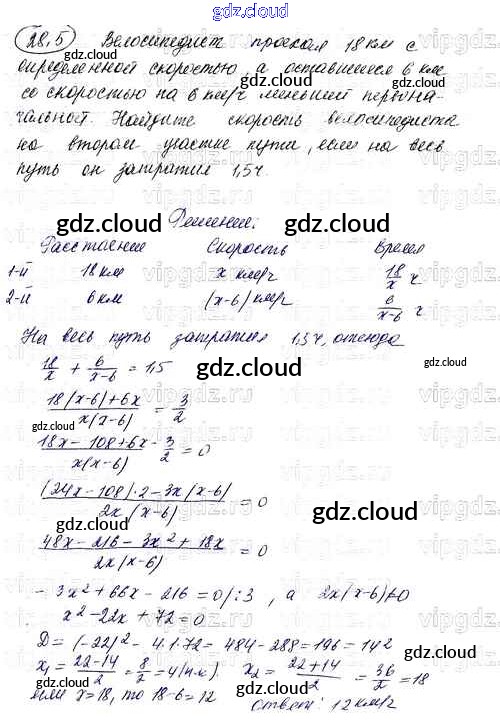 gdz.cloud
28.5 Велосипедист проехал 18 км с
определенной скоростью, а оставшиеся 6 км
со скоростью на 6 км/ч меньшей первона-
чальной. Найдите скорость велосипедиста
на втором участке пути, если на весь
путь он затратил 1,5 ч.
gdz.cloud
Решение:
Расстояние Скорость Время
1-й 18 км x км/ч 18/x ч
2-й 6 км (x-6) км/ч 6/x-6 ч
На весь путь затратил 1,5 ч, отсюда
18/x + 6/x-6 = 1,5
18(x-6)+6x / x(x-6) = 3/2
18x - 108+6x / x(x-6) - 3/2 = 0
(24x-108)·2-3x(x-6) / 2x(x-6) = 0
48x-216-3x²+18x / 2x(x-6) = 0
-3x²+66x-216=0/:3, а 2x(x-6)≠0
x²-22x+72=0
D=(-22)²-4·1·72= 484-288=196=14²
x₁= 22-14/2 = 8/2 = 4(п.к.) x₂= 22+14/2 = 36/2 = 18
если x=18, то 18-6=12 ответ: 12 км/ч
gdz.cloud